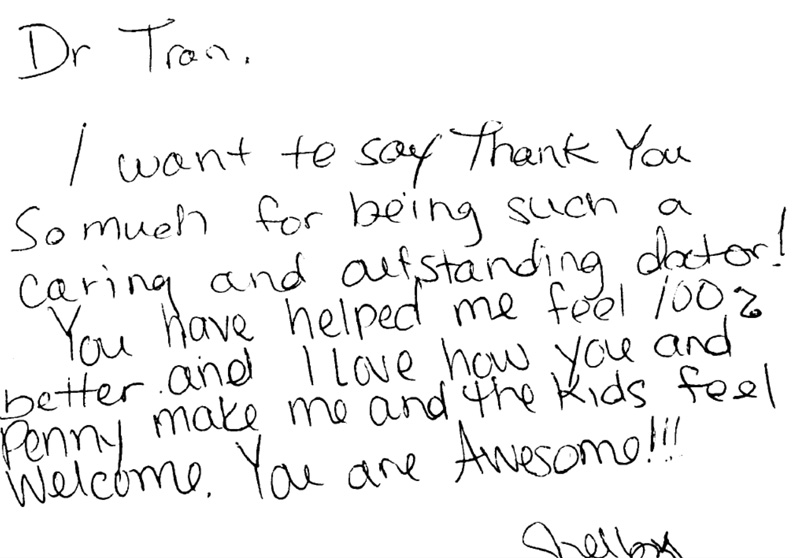 Dr Tran.
I want to say Thank You
So much for being such a
caring and outstanding doctor!
You have helped me feel 100%
better and I love how you and
Penny make me and the kids feel
Welcome. You are Awesome!!!
Shelby